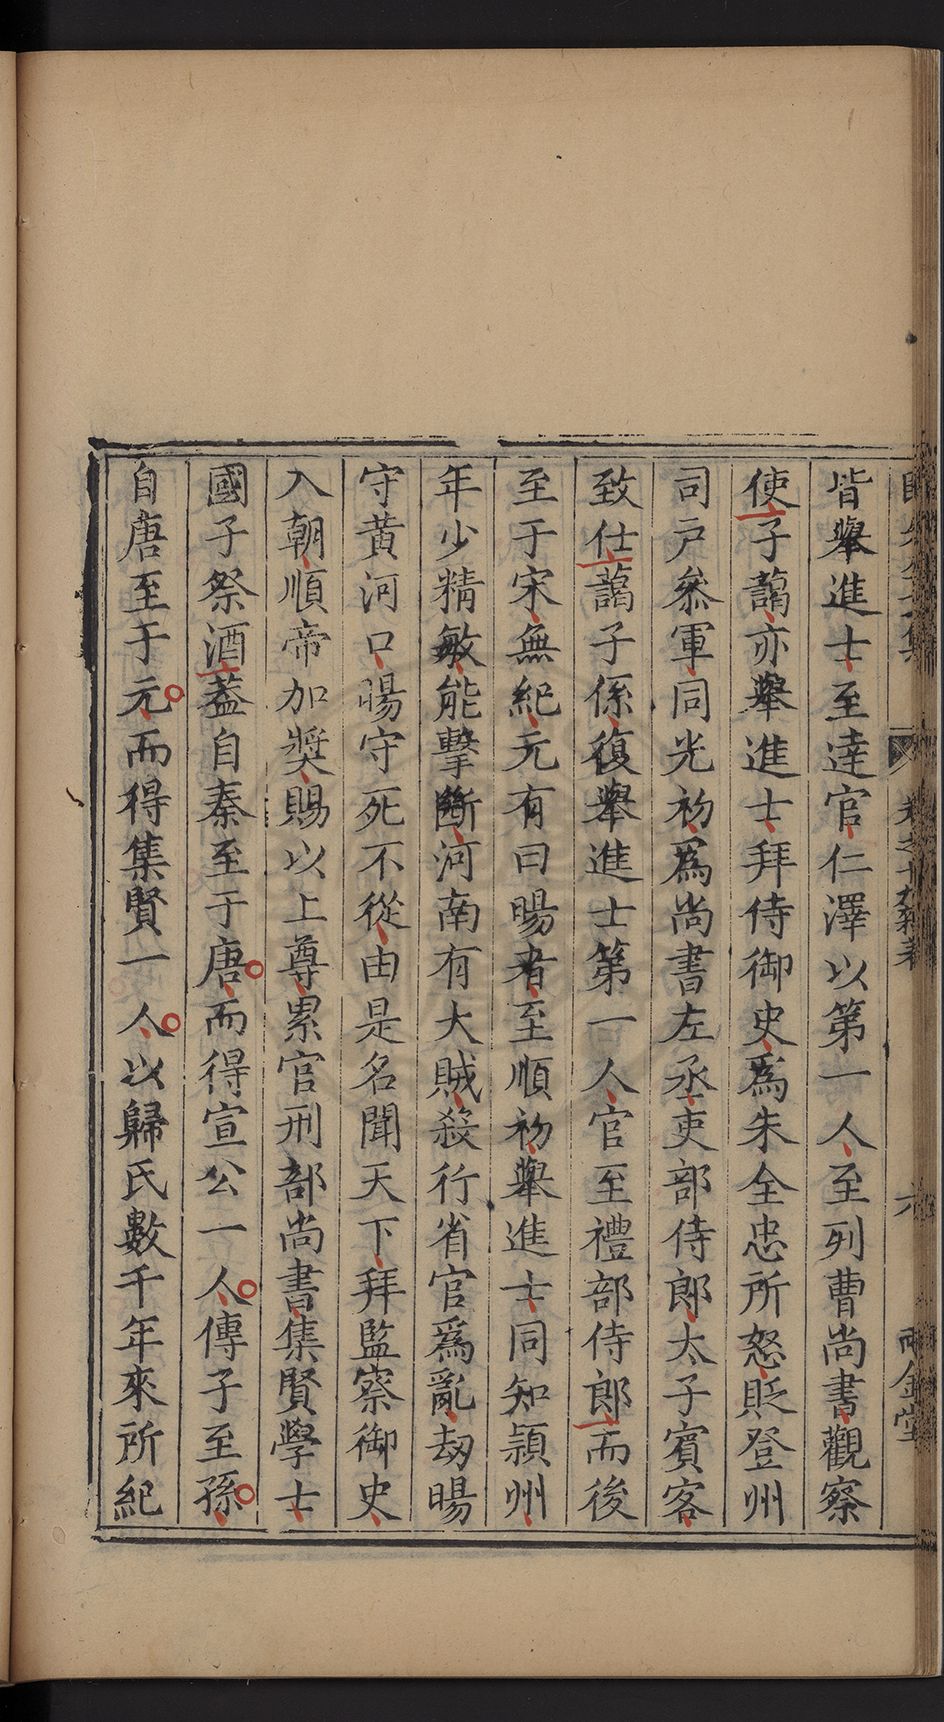 皆舉進士至達官仁澤以第一人至列曹尚書觀察
使子藹亦舉進士拜侍御史爲朱全忠所怒貶登州
司戶叅軍同光初爲尚書左丞吏部侍郎太子賓客
致仕藹子係復舉進士第一人官至禮部侍郎而後
至于宋無紀元有曰暘者至順初舉進士同知潁州
年少精敏能擊斷河南有大賊殺行省官爲亂刼暘
守黃河口暘守死不從由是名聞天下拜監察御史
入朝順帝加奬賜以上尊累官刑部尚書集賢學士
國子祭酒葢自秦至于唐而得宣公一人傳子至孫
自唐至于元而得集賢一人以歸氏數千年來所紀